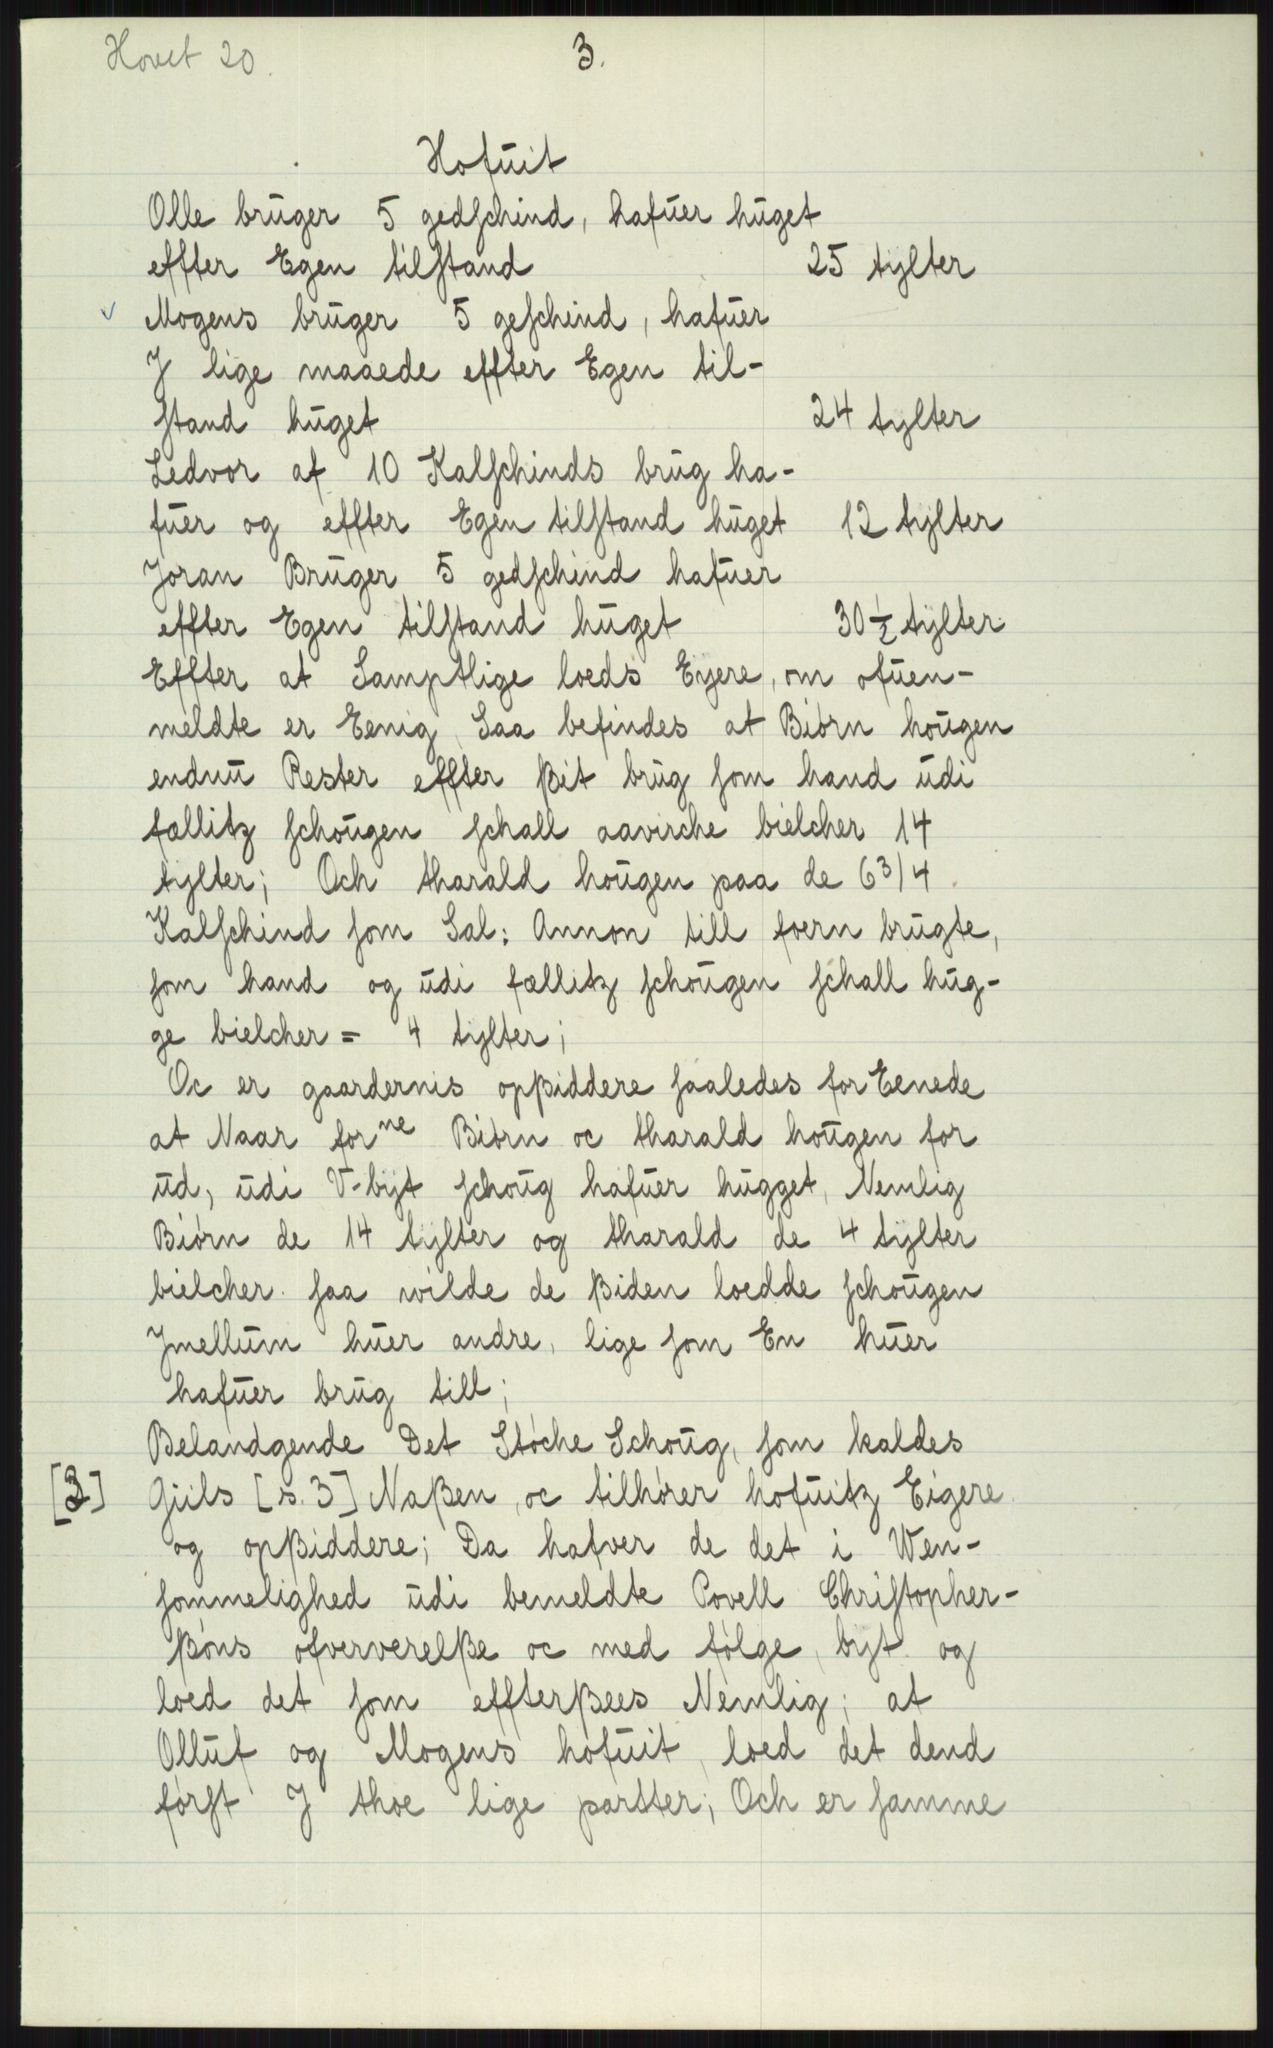 Hovet 20.
3.
Hofuit
Olle bruger 5 gedschind, hafuer huget
effter Egen tilstand 25 tylter
✓ Mogens bruger 5 geschind, hafuer
J lige maaede effter Egen til-
stand huget 24 tylter
Ledvor af 10 Kalschinds brug ha-
fuer og effter Egen tilstand huget 12 tylter
Joran Bruger 5 gedschind hafuer
effter Egen tilstand huget 30 1/2 tylter
Effter at Samptlige loeds Eyere, om ofuen-
meldte er Eenig, Saa befindes at Biørn hougen
endnu Rester effter ßit brug som hand udi
fællitz schougen schall aavirche bielcher 14
tylter; Och tharald hougen paa de 6 3/4
Kalschind som Sal: Annon till foern brugte,
som hand og udi fællitz schougen schall hug-
ge bielcher = 4 tylter;
Oc er gaardernis opßiddere saaledes for Eenede
at Naar forne Biørn oc tharald hougen for
ud, udi V-byt schoug hafuer hugget, Nemlig
Biørn de 14 tylter og tharald de 4 tylter
bielcher. saa wilde de ßiden loedde schougen
Jmellum huer andre, lige som En huer
hafuer brug till;
Belandgende Det Støche Schoug, som kaldes
[3] Guls [s. 3] Naßen, oc tilhører hofuitz Eigere
og opßiddere; Da hafver de det i Wen-
sommelighed udi bemeldte Povell Christopher-
ßøns ofververelße oc med følge, byt og
loed det som effterßees Nemlig; at
Olluf og Mogens hofuit, loed det dend
først J thoe lige partter; Och er samme